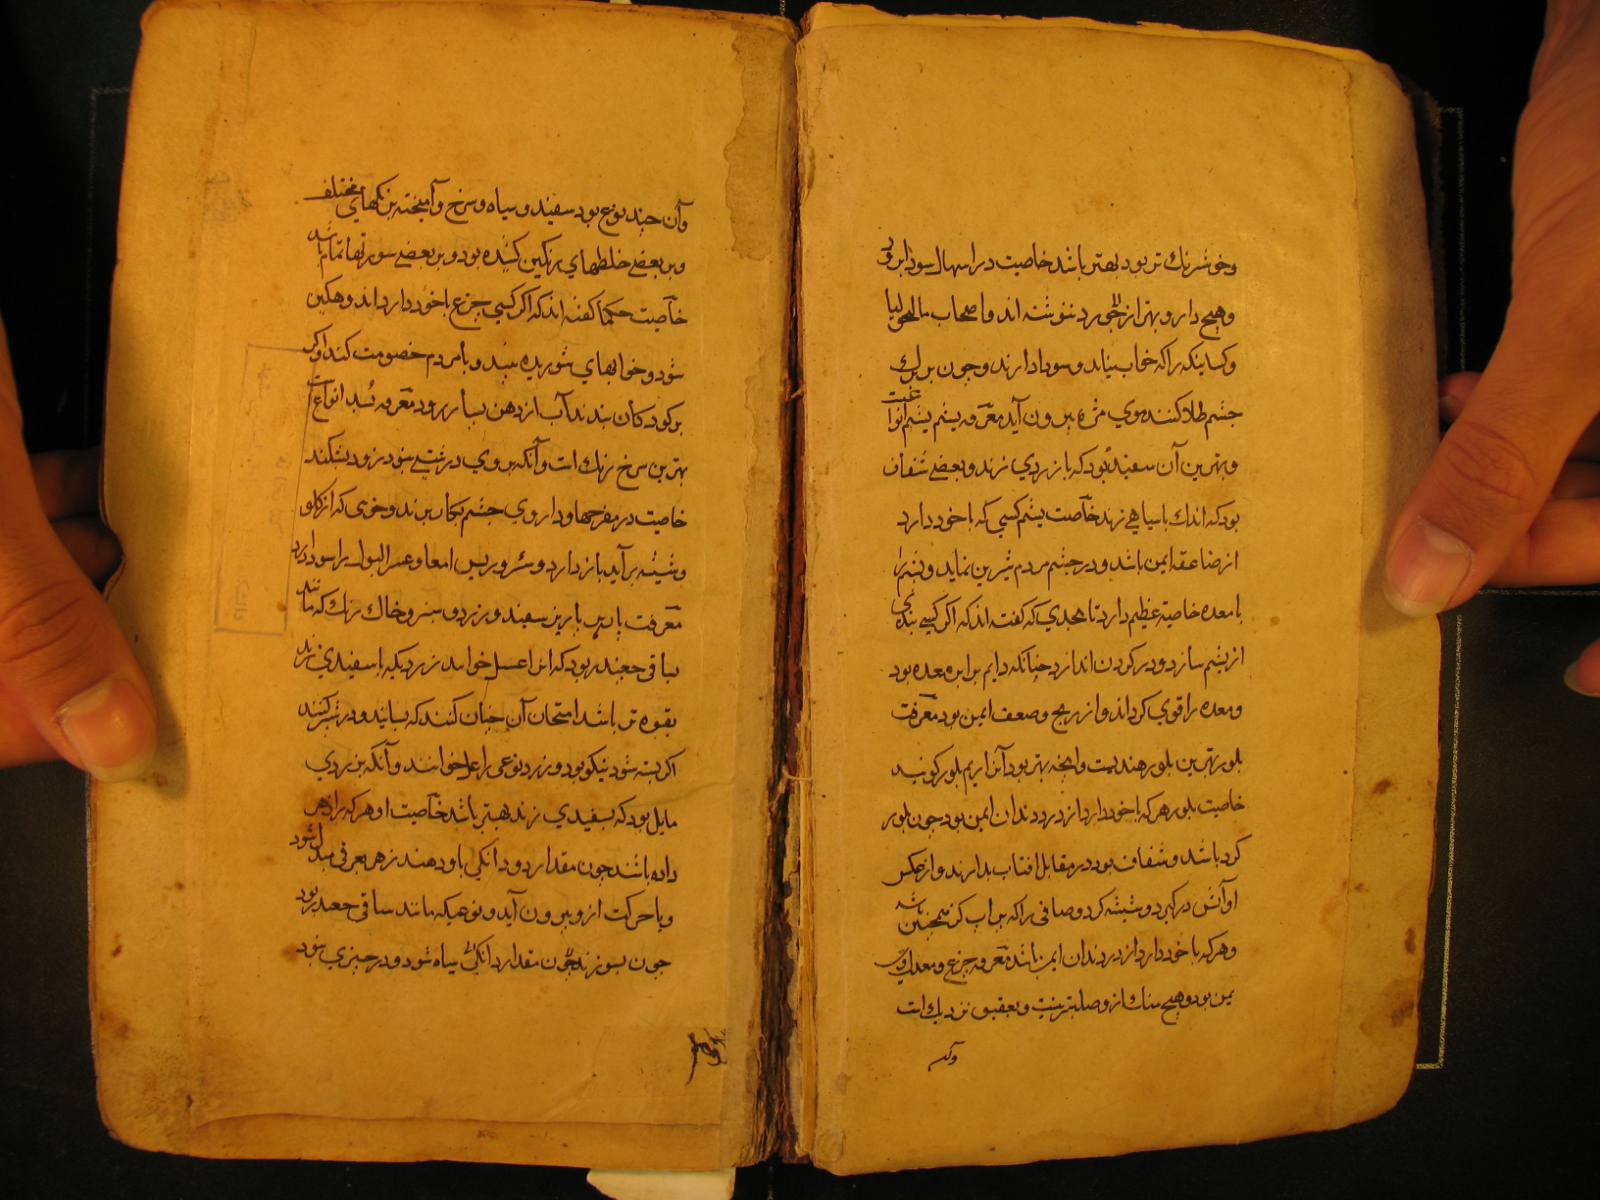 وخوشرنك تر بود بهتر باشد خاصیت در اسهال سودا برود
وهیچ دارو بهتر از حجر لاجورد ننوشته اند واصحاب مالیخولیا
وکسانیکه را که خواب نیاید وسودا دارند وچون بر پلك
چشم طلا کنند موی مژه بیرون آید معرفت یشم یشم انواعست
وبهترین آن سفید بود که بازردی زند وبعضی شفاف
بود که اندك باسیاهی زند خاصیت یشم کسی که باخود دارد
از صاعقه ایمن باشد ودر چشم مردم شیرین نماید ویشم را
بامعده خاصیة عظیم دارد تا بحدی که گفته اند که اکر کسی بندی
از یشم سازد ودر کردن اندازد چنانکه دایم برابر معده بود
ومعده را قوی کرداند واز ریح وضعف ایمن بود معرفت
بلور بهترین بلور هندیست وانچه بهتر بود آنرا ریم بلور کویند
خاصیت بلور هرکه باخود دارد از درد دندان ایمن بود چون بلور
کرد باشد وشفاف بود در مقابل افتاب بدارند واز عکس
او آتش در کیرد وشیشه کرد وصافی را که پر اب کنند همچنین باشد
وهرکه باخود دارد از درد دندان ایمن باشد معرفت جزع ومعدن او
یمن بود وهیچ سنك از وصلبتر نیست وبعقیق نزدیك است
وآن
وآن چند نوع بود سفید وسیاه وسرخ وآمیخته برنکهای مختلف
وبر بعضی خطهای رنکین کشیده بود وبر بعضی صورتها تمام باشد
خاصیت حکما کفته اند که اکر کسی جزع باخود دارد اندوهکین
شود وخوابهای شوریده بیند وبامردم خصومت کند واکر
بر کودکان بندند آب از دهن بسیار برود معرفت بسد انواعست
بهترین سرخ رنك است وآنکه بروی درشتی بود زود بشکند
خاصیت در مفرحها وداروی چشم بکار برند وخونی که از کلو
وشش برآید باز دارد وسود دارد
معرفت پادزهر پادزهر سفید وزرد وسبز وخاك رنك که مانند
بود که انرا عسل خوانند زردیکه باسفیدی زند
بقوه تر باشد امتحان آن چنان کنند که بسایند ودر شیر کنند
اکر بسته شود نیکو بود وزرد نوعی را عسل خوانند وآنکه بزردی
مایل بود که بسفیدی زند بهتر باشد خاصیت او هرکه را زهر
داده باشند چون مقدار دو دانکی باو دهند زهر بعرق مبدل شود
وباحرکت از وبیرون آید ونوعیکه مانند ساق
چون بسوزند چون مقدار دانکی سیاه شود ودر چیزی شود